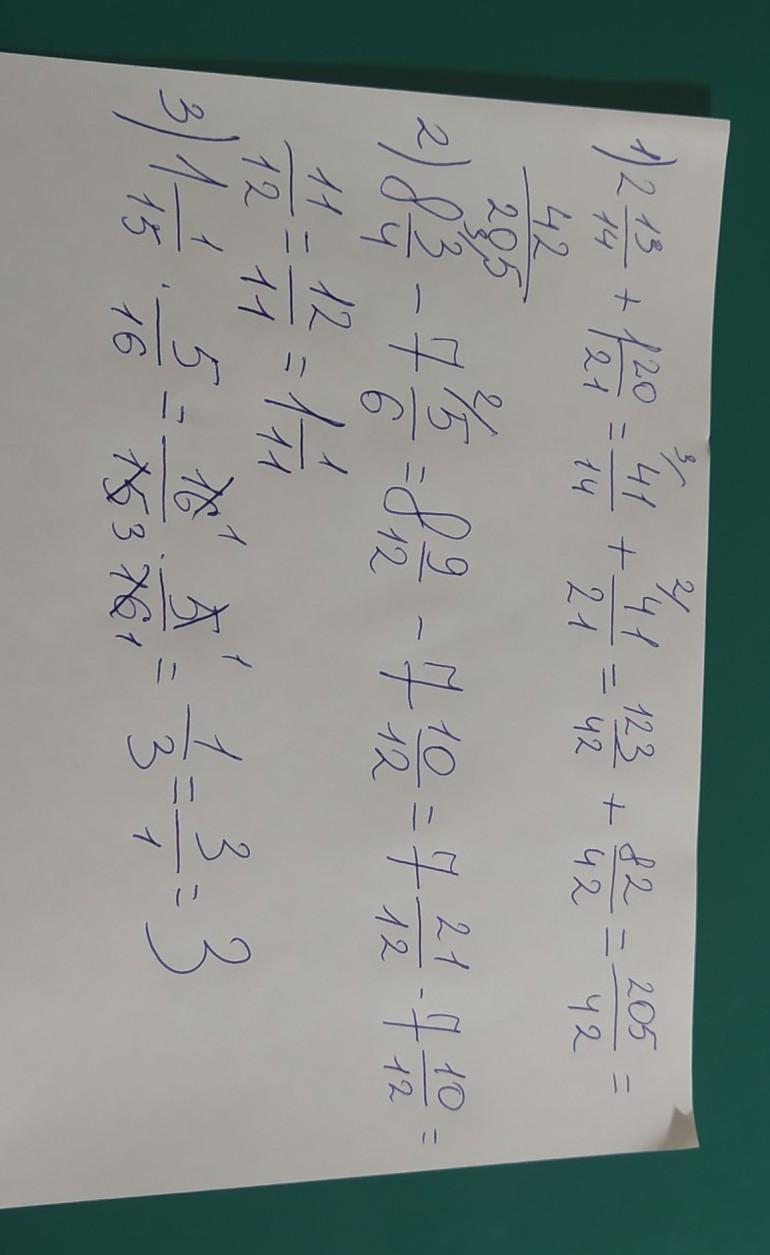 1) 2 13/14 + 1 20/21 = 3/ 41/14 + 2/ 41/21 = 123/42 + 82/42 = 205/42 =
42/205
2) 8 3/ 3/4 - 7 2/ 5/6 = 8 9/12 - 7 10/12 = 7 21/12 - 7 10/12 =
11/12 = 12/11 = 1 1/11
3) 1 1/15 · 5/16 = 16 1/15 3 · 5 1/16 1 = 1/3 = 3/1 = 3